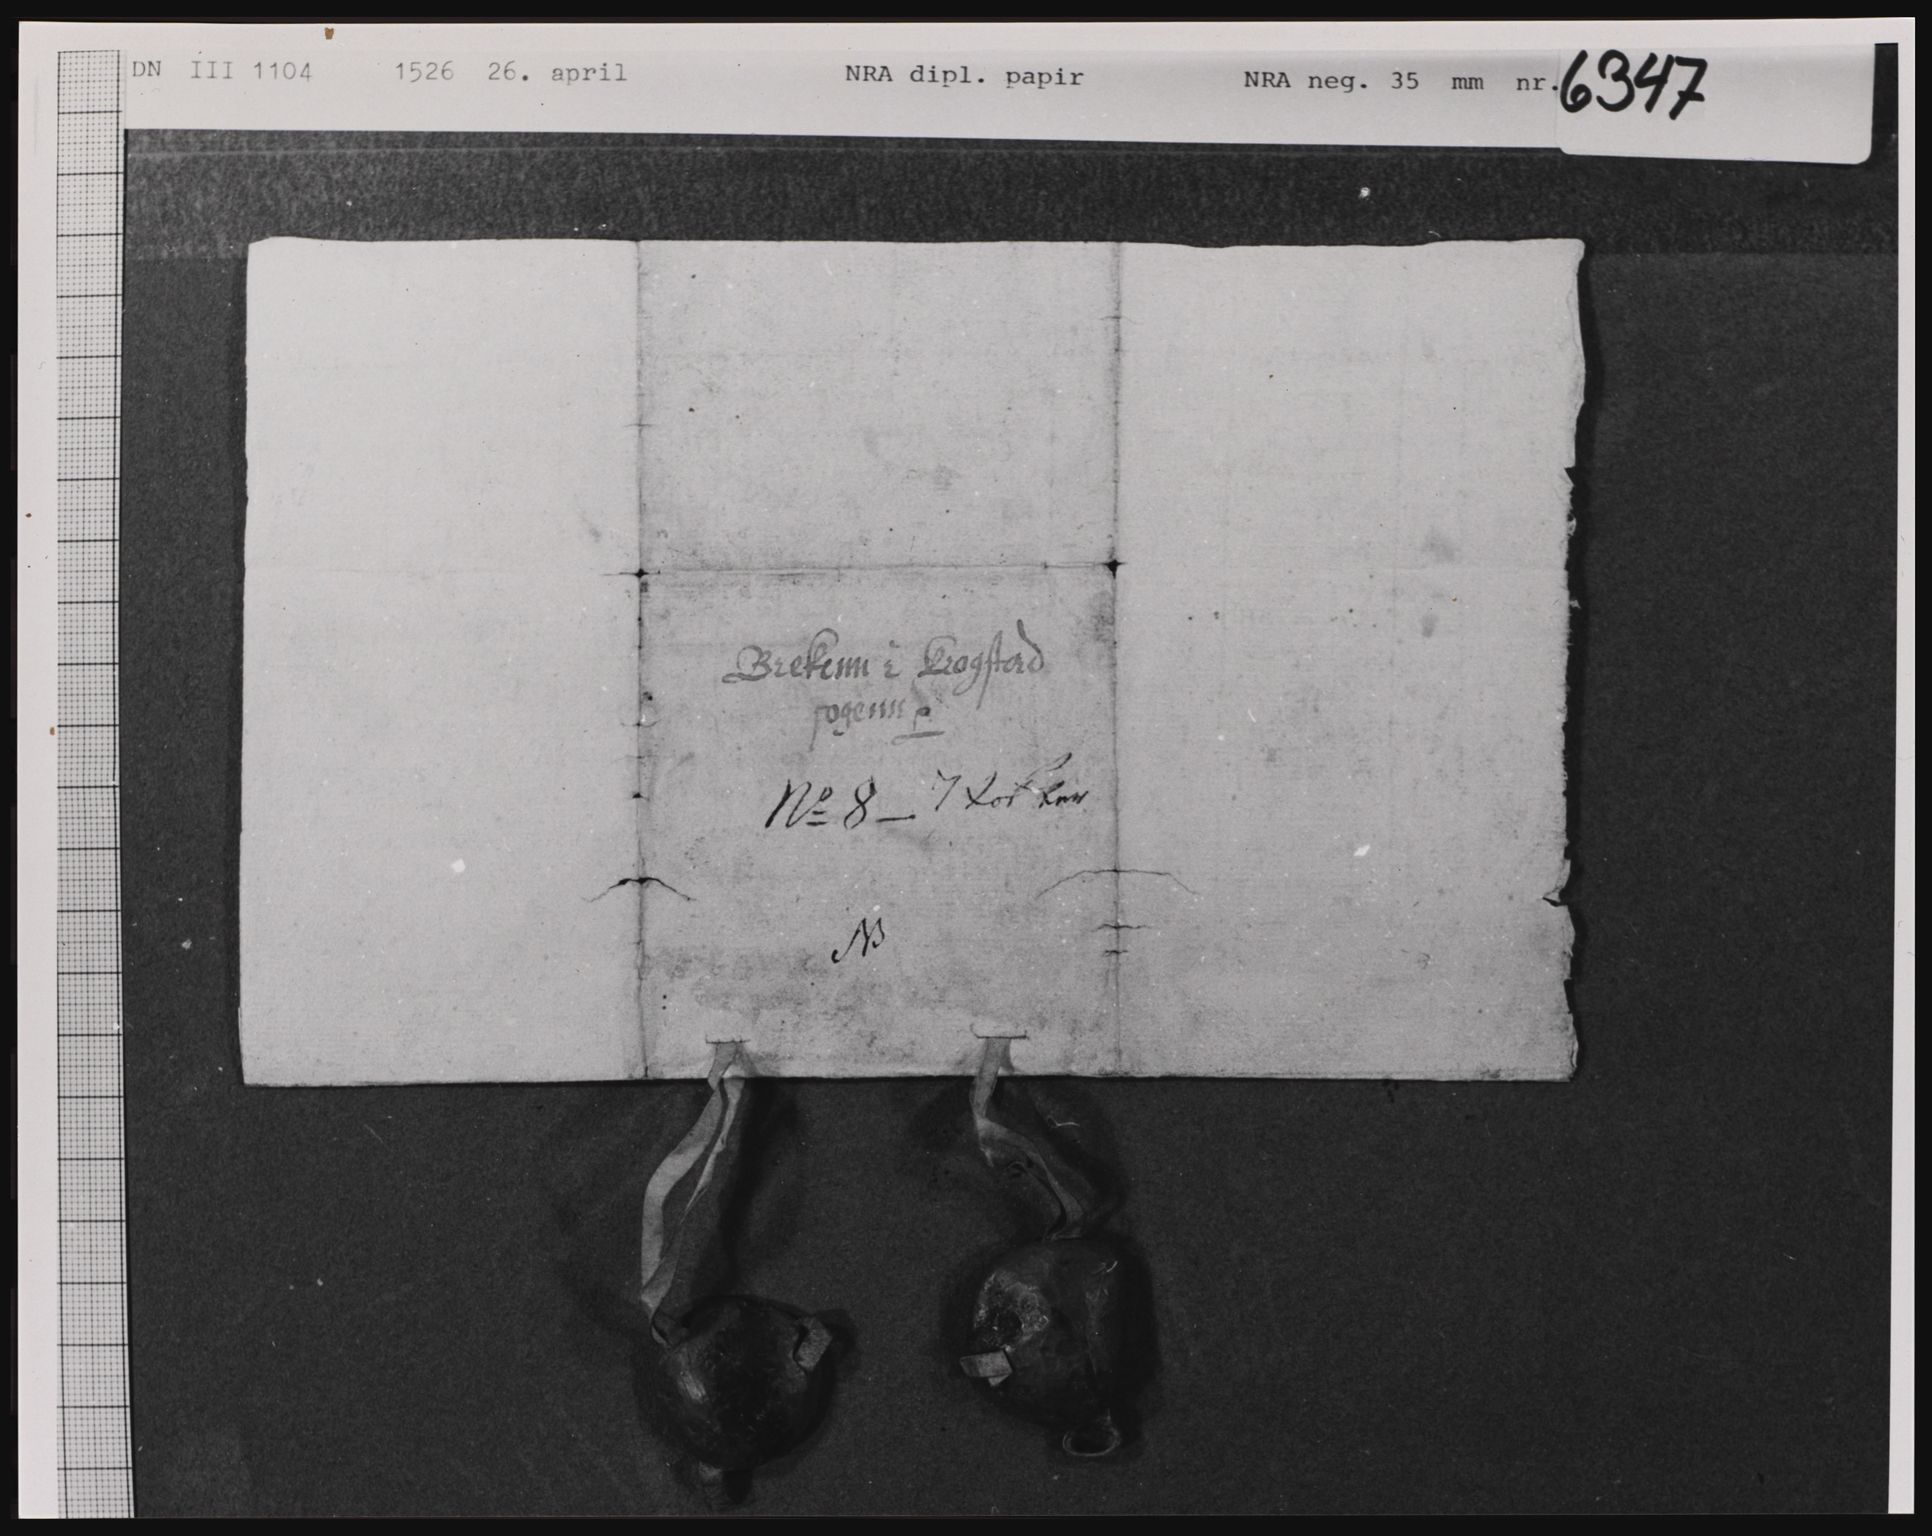 DN III 1104 1526 26. april NRA dipl. papir NRA neg. 35 mm nr. 6347
Brekenn i Krogstad
sogenn
No 8 - 7
NB